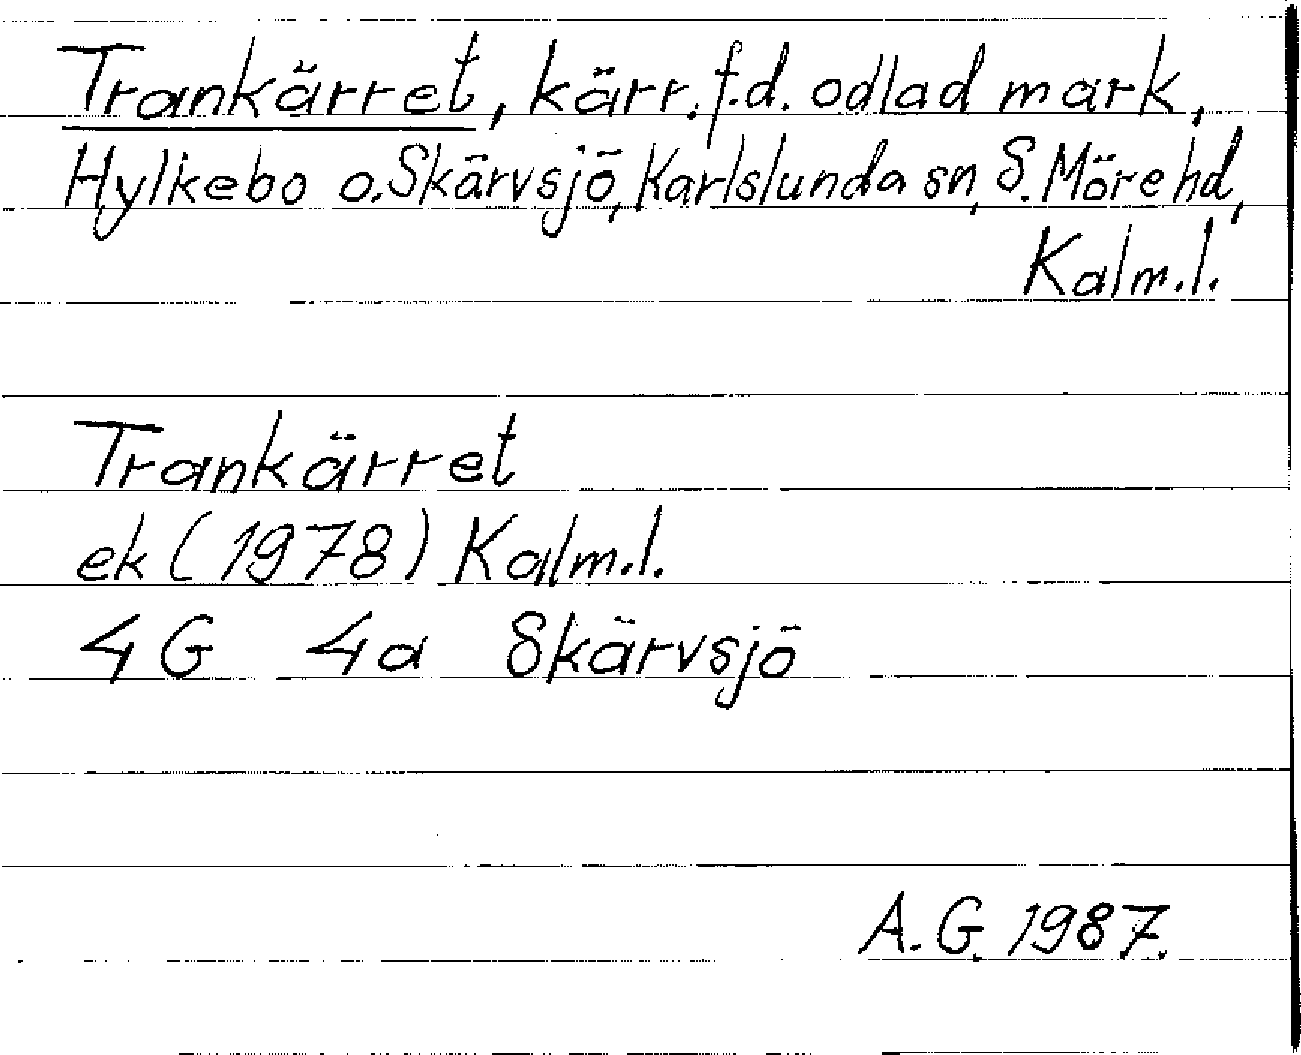 Trankärret, kärr. f.d. odlad mark,
Hylkebo o. Skärvsjö, Karlslunda sn, S. Möre hd,
Kalm.l.
Trankärret
ek (1978) Kalm.l.
4G 4a Skärvsjö
A.G. 1987.